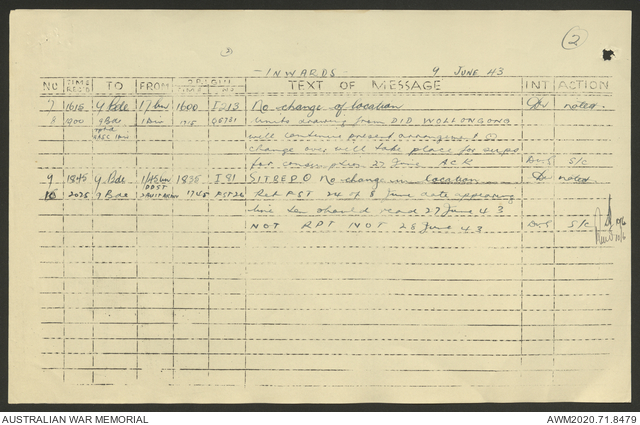 (3)
2
INWARDS 9 JUNE 43
NO TIME REC'D TO FROM ORIGIN TIME NO TEXT OF MESSAGE INT ACTION
7 1615 9 Bde 17 Bn 1600 I 213 No change of location noted.
8 1700 9 Bde 1 Div 1715 Q5721 Units drawing from DID WOLLONGONG
AASC will continue present
change over will take place for
for consumption 27 June ACK S/C
9 1845 9 Bde 1/45 Bn 1835 I 81 SITREP O No change in location noted
10 2025 9 Bde 1745 PST26 Ref PST 24 of 8 June date appearing
line ten should read 27 June 43
NOT RPT NOT 28 June 43 S/C
AUSTRALIAN WAR MEMORIAL
AWM2020.71.8479